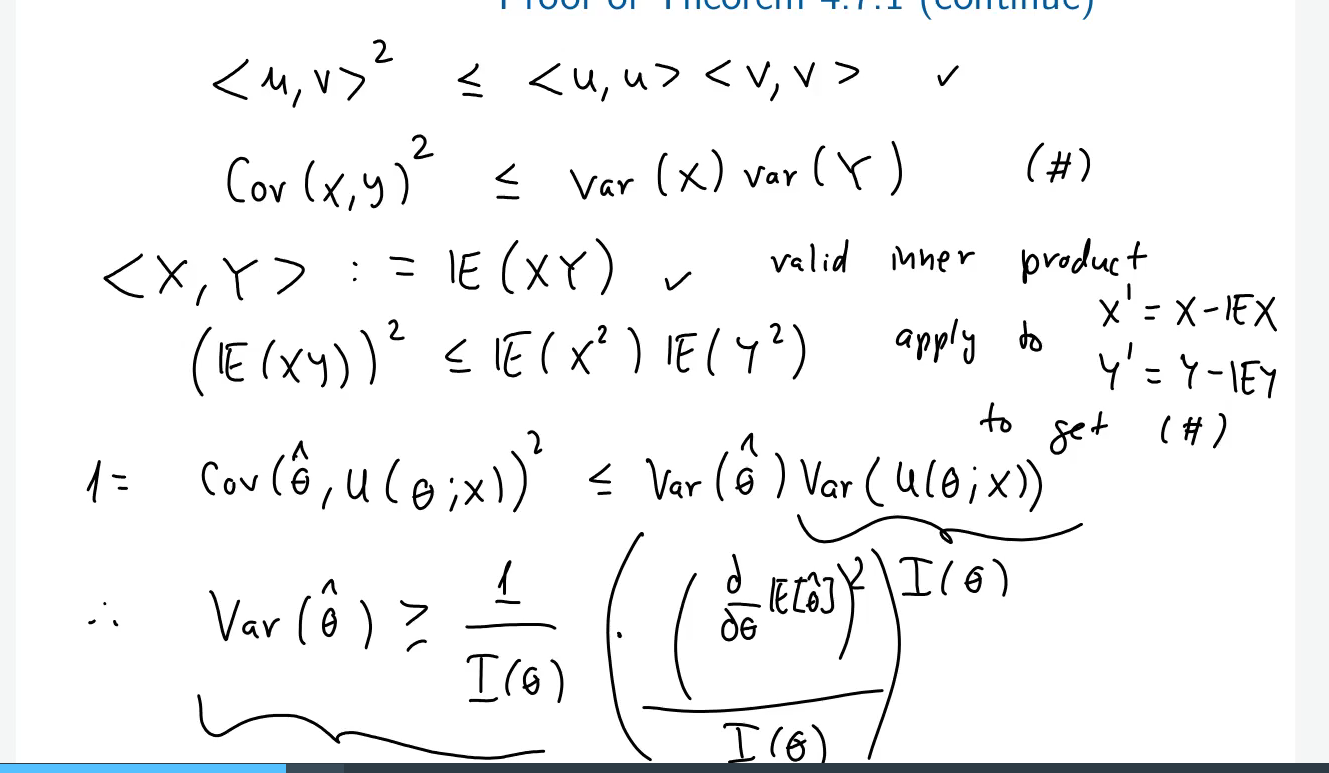 Proof of Theorem 4.7.1 (continue)
<u,v>² ≤ <u,u><v,v> ✓
Cov(x,y)² ≤ Var(X) var(Y) (#)
<X,Y> := 𝔼(XY) ✓ valid inner product
(𝔼(XY))² ≤ 𝔼(X²) 𝔼(Y²) apply to X' = X-𝔼X
Y' = Y-𝔼Y
to get (#)
1 = Cov(θ̂,U(θ;x))² ≤ Var(θ̂) Var(U(θ;x))
I(θ)
∴ Var(θ̂) ≥ 1/I(θ) (· (d/dθ 𝔼[θ̂])²/I(θ))